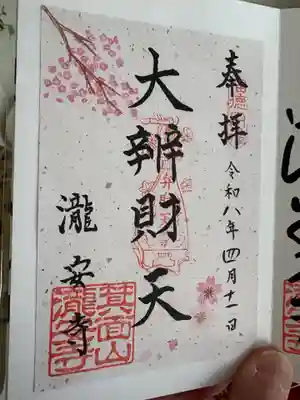 奉拝
令和八年四月十一日
大辨財天
瀧安寺
箕面山
瀧安寺